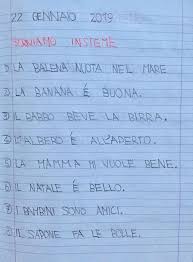 22 GENNAIO 2019
INSIEME
LA BALENA NUOTA NEL MARE
LA BANANA É BUONA.
IL BABBO BEVE LA BIRRA.
L'ALBERO É ALL'APERTO.
LA MAMMA MI VUOLE BENE.
IL NATALE É BELLO.
I BAMBINI SONO AMICI.
IL SAPONE FA LE BOLLE.